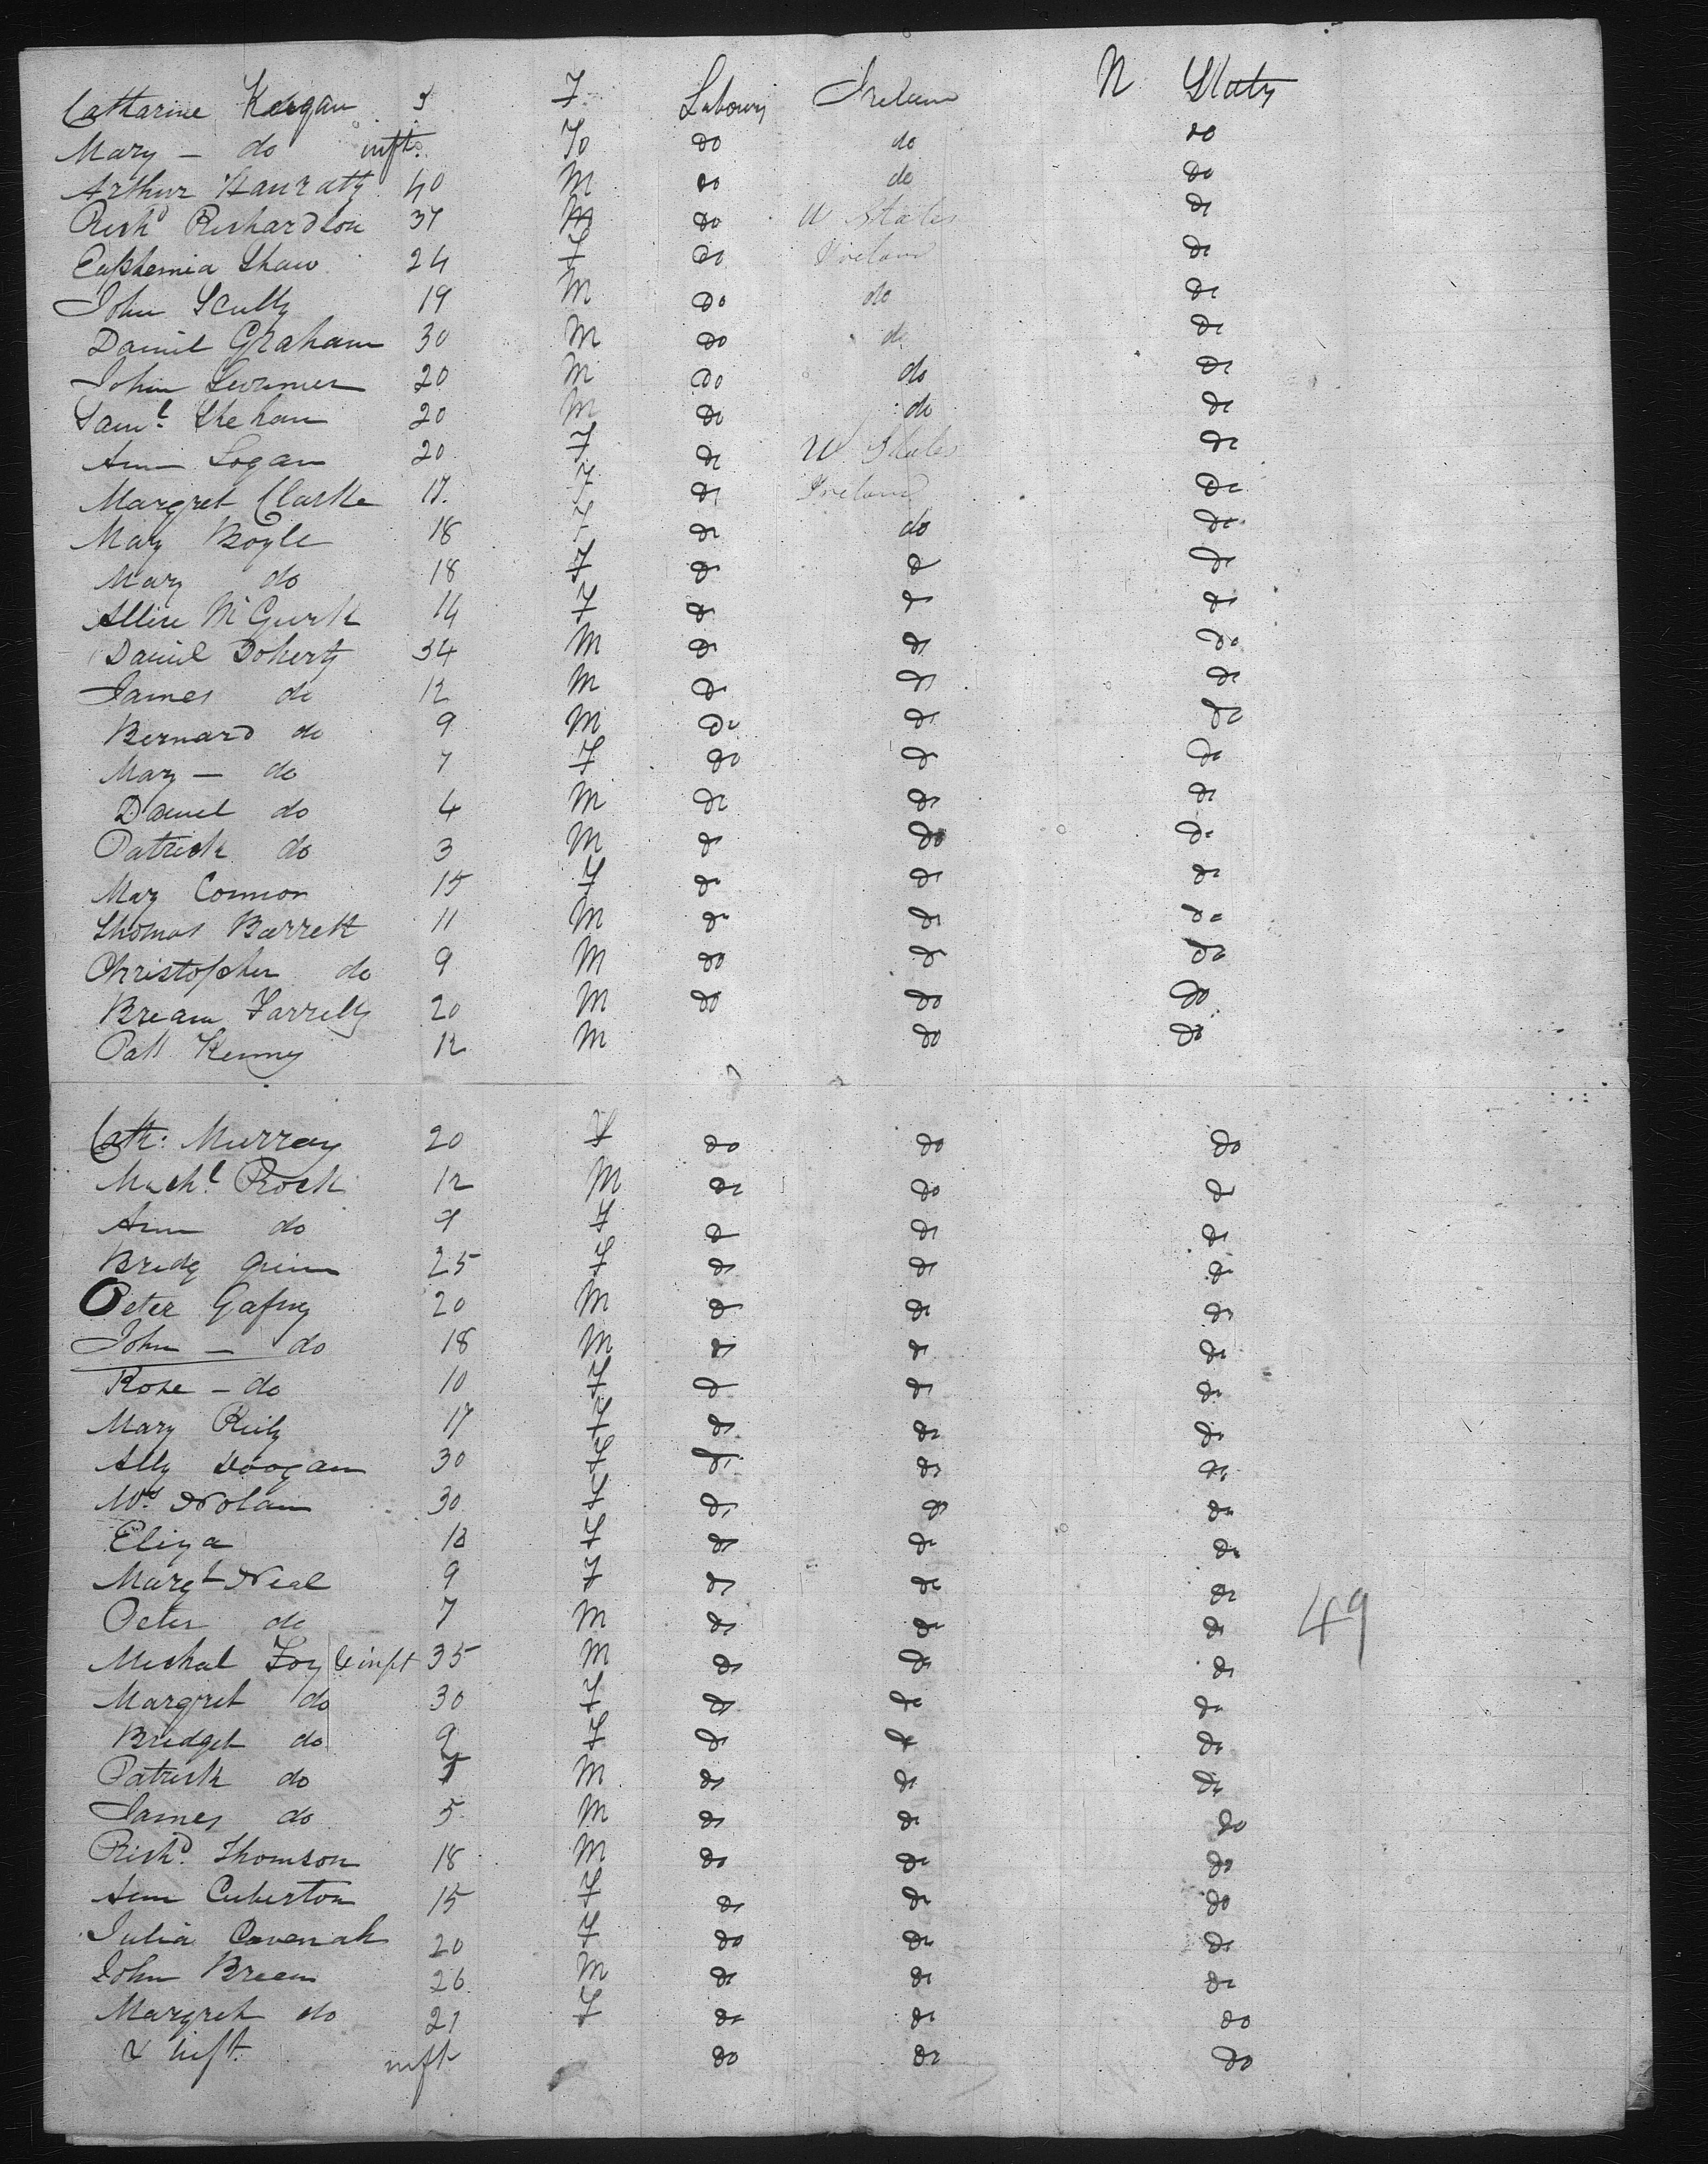 Catharine Keegan 5 F Labourer Ireland U States
Mary — do inft. Fo do do do
Arthur Hanraty 40 M do do do
Richd Richardson 37 M do U States do
Euphemia Shaw 24 F do Ireland do
John Scully 19 M do do do
Daniel Graham 30 M do do do
John 20 M do do do
Saml Shehan 20 M do do do
Ann Logan 20 F do U States do
Margret Clarke 17 F do Ireland do
Mary Boyle 18 F do do do
Mary do 18 F do do do
Allice McGurk 14 F do do do
Daniel Doherty 34 M do do do
James do 12 M do do do
Bernard do 9 M do do do
Mary — do 7 F do do do
Daniel do 4 M do do do
Patrick do 3 M do do do
Mary Connor 15 F do do do
Thomas Barrett 11 M do do do
Christopher do 9 M do do do
Bream Farrelly 20 M do do do
Patt Kenny 12 M do do
Cath: Murray 20 F do do do
Michl Rock 12 M do do do
Ann do 9 F do do do
Bridg Quinn 25 F do do do
Peter Gafny 20 M do do do
John — do 18 M do do do
Rose — do 10 F do do do
Mary Reily 17 F do do do
Ally Doogan 30 F do do do
Mrs Nolan 30 F do do do
Eliza F do do do
Margt Neal 9 F do do do
Peter do 7 M do do do 49
Michal Foy & inft 35 M do do do
Margret do 30 F do do do
Bridget do 9 F do do do
Patrick do 7 M do do do
James do 5 M do do do
Richd Thomson 18 M do do do
Ann Cuberton 15 F do do do
Julia Cavenah 20 F do do do
John Breen 26 M do do do
Margret do 21 F do do do
& inft. inft do do do